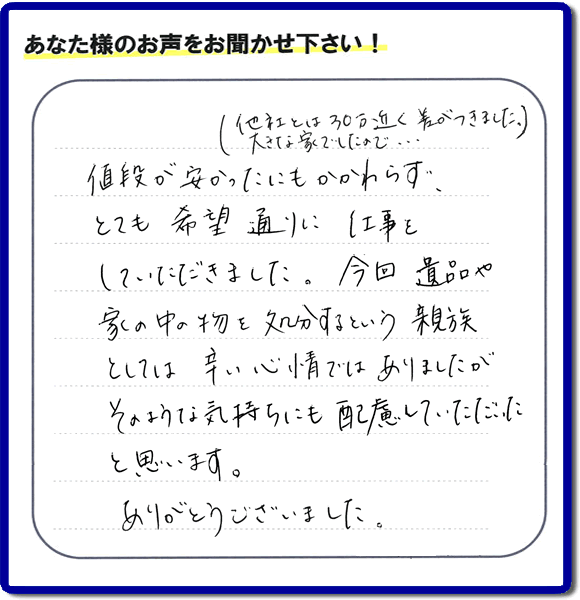 あなた様のお声をお聞かせ下さい！
(他社とは30万近く差がつきました。)
大きな家でしたので・・・
値段が安かったにもかかわらず、
とても希望通りに仕事を
していただきました。今回遺品や
家の中の物を処分するという親族
としては辛い心情ではありましたが
そのような気持ちにも配慮していただいた
と思います。
ありがとうございました。